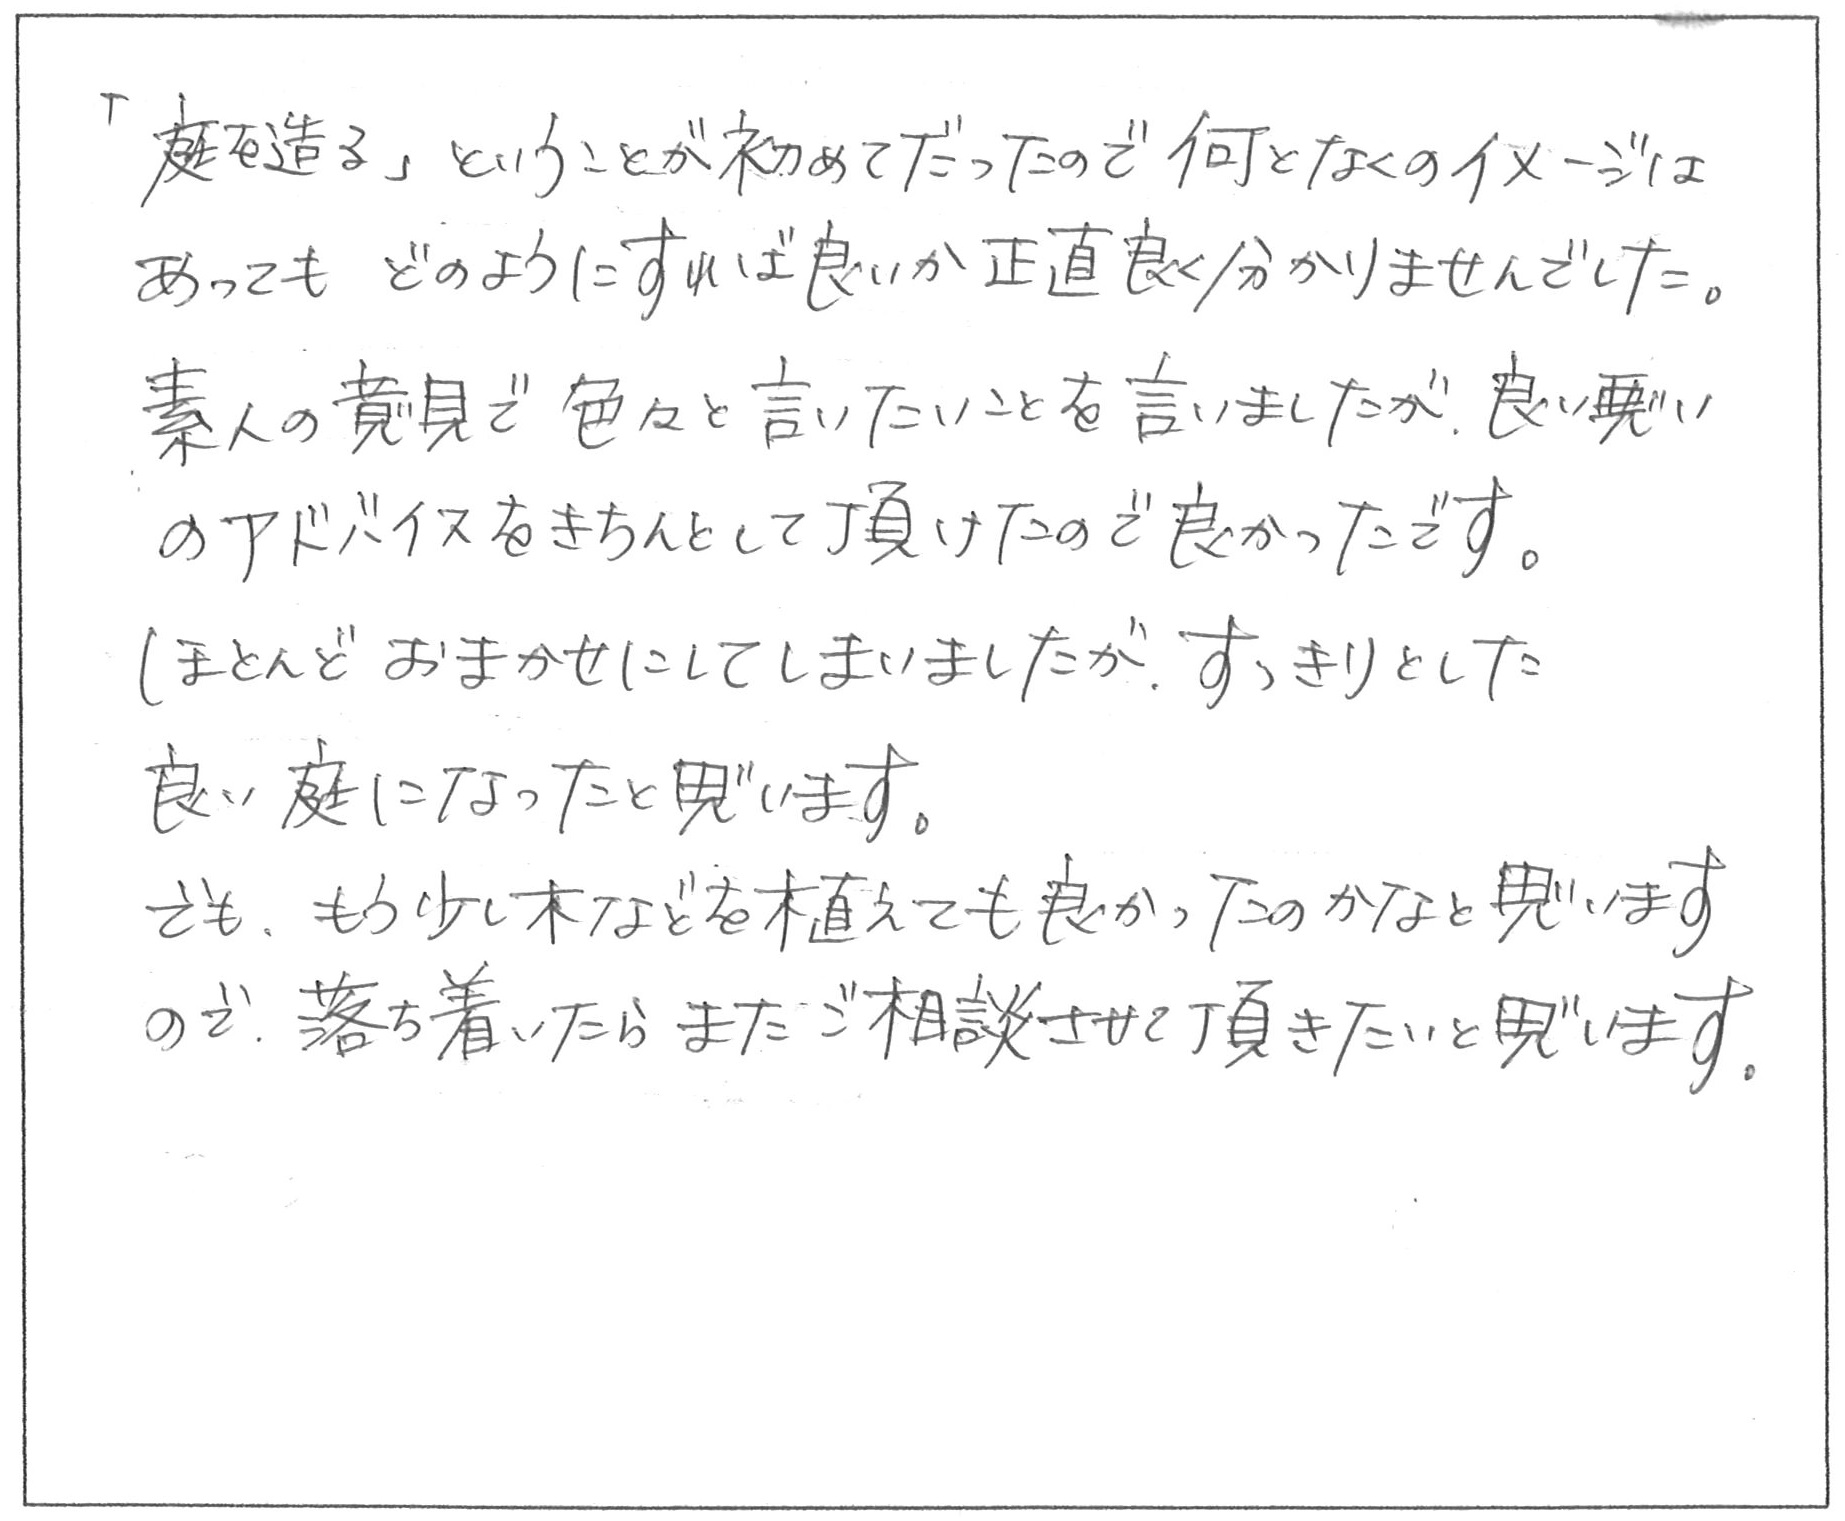 「庭を造る」ということが初めてだったので何となくのイメージは
あっても どのようにすれば良いか正直良く分かりませんでした。
素人の意見で色々と言いたいことを言いましたが、良い悪い
のアドバイスをきちんとして頂けたので良かったです。
ほとんどおまかせにしてしまいましたが、すっきりとした
良い庭になったと思います。
でも、もう少し木などを植えても良かったのかなと思います
ので、落ち着いたらまたご相談させて頂きたいと思います。